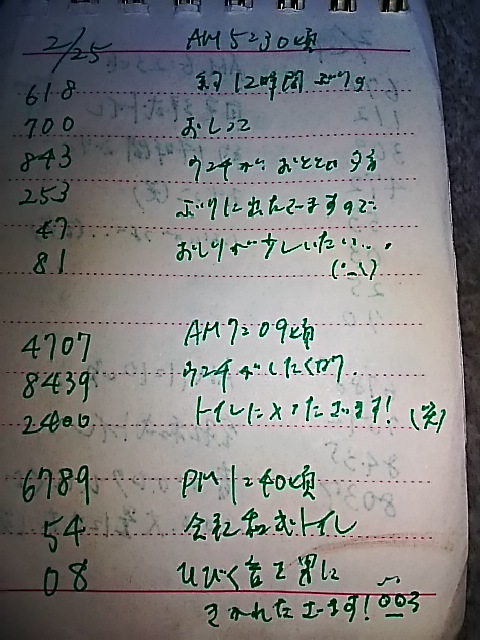 2/25 AM5:30頃
618 約12時間ぶりの
700 おしっこ
843 ウンチが おとといの夕方
253 ぶりに出たてますので
47 おしりが少しいたい...
81 (._.)
4707 AM7:09頃
8439 ウンチがしたくなり
2400 トイレに ます! (笑)
6789 PM1:40頃
54 会社 和式トイレ
08 ひびく音を男に
きかれたます! 003